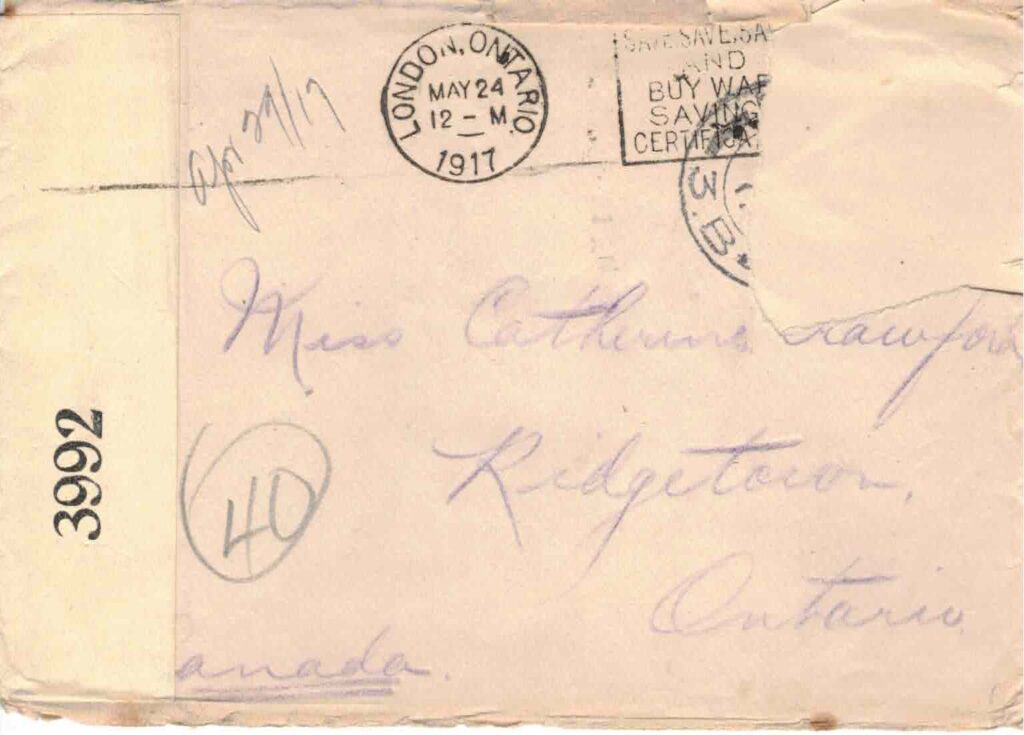 LONDON, ONTARIO.
MAY 24
12 - M
1917
SAVE, SAVE, SA
AND
BUY WAR
SAVING
CERTIFICA
3.B
Apr 29/17
Miss Catherine Crawford
Ridgetown,
Ontario
Canada.
40
3992